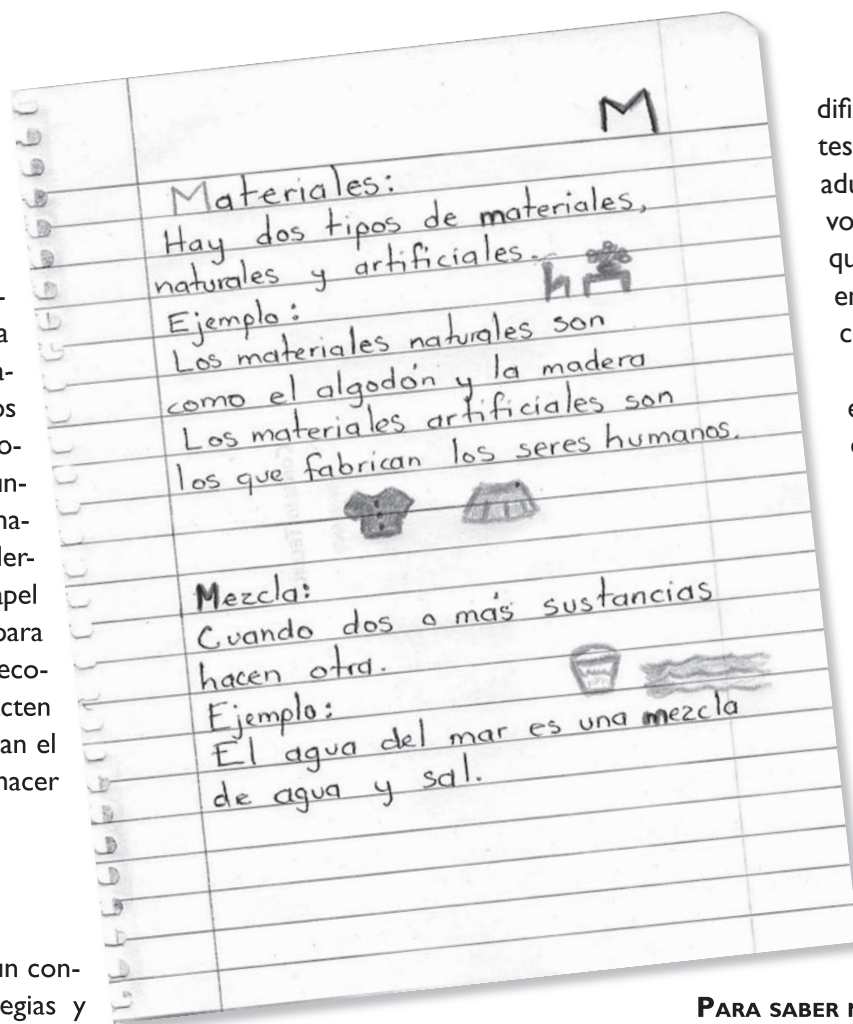 M
Materiales:
Hay dos tipos de materiales,
naturales y artificiales.
Ejemplo:
Los materiales naturales son
como el algodón y la madera
Los materiales artificiales son
los que fabrican los seres humanos.
Mezcla:
Cuando dos o más sustancias
hacen otra.
Ejemplo:
El agua del mar es una mezcla
de agua y sal.
para
an el
hacer
un con-
egias y
PARA SABER